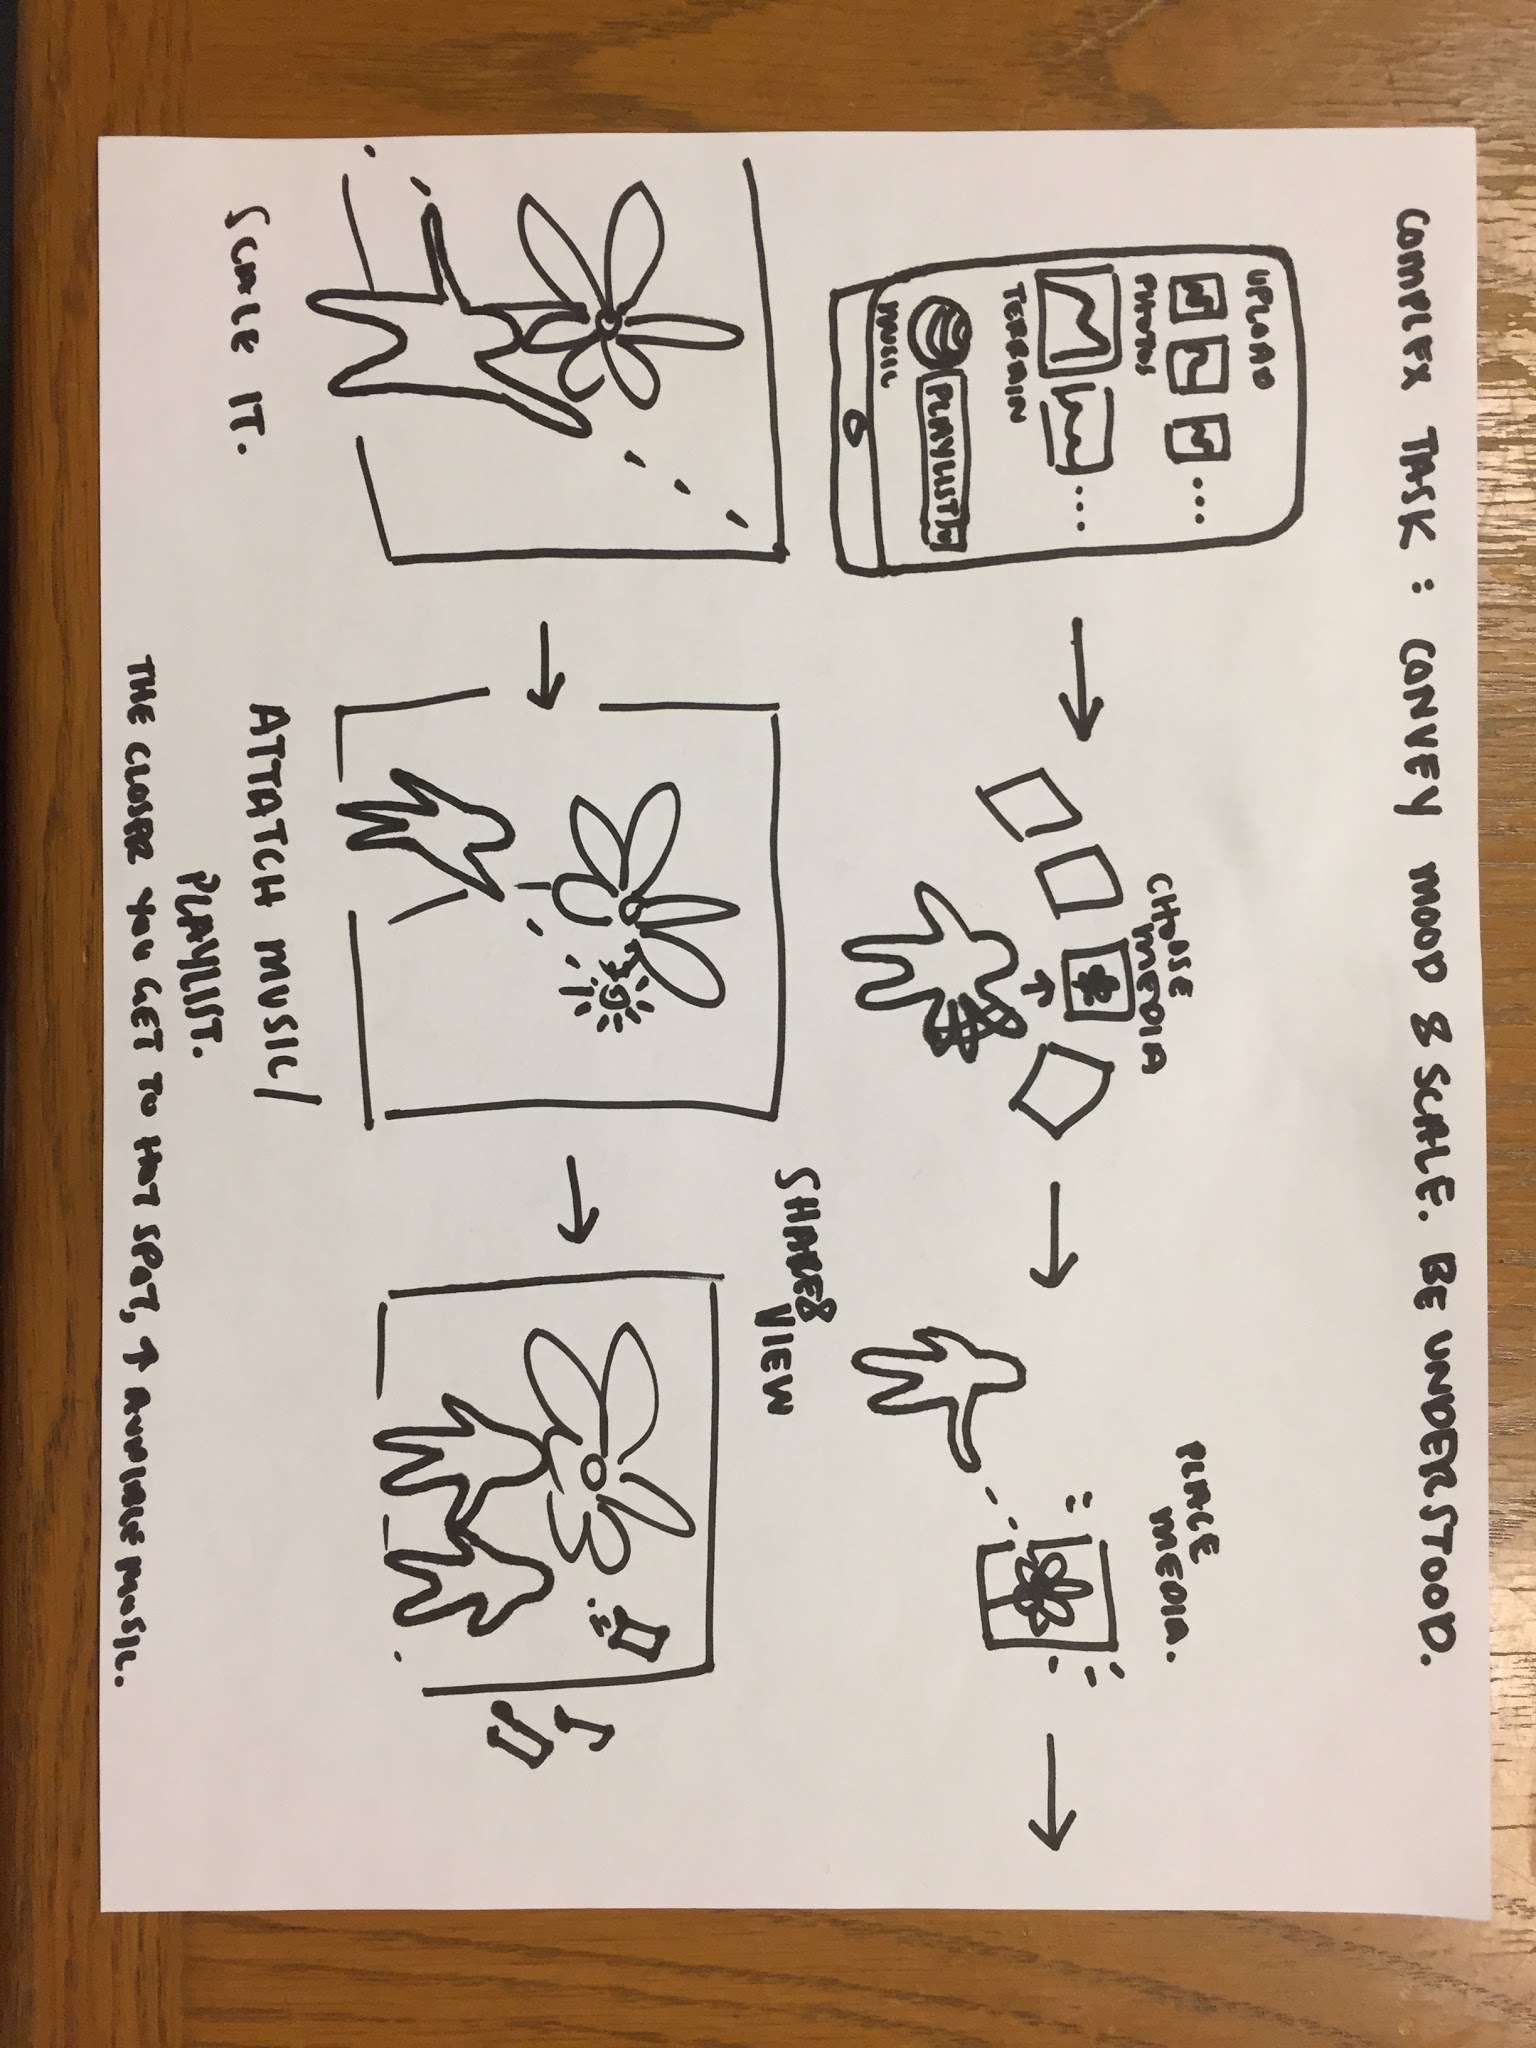 COMPLEX TASK : CONVEY MOOD & SCALE. BE UNDERSTOOD.
UPLOAD
PHOTOS
TERRAIN
PLAYLIST
MUSIC
CHOOSE
MEDIA
PLACE
MEDIA.
SCALE IT.
ATTATCH MUSIC/
PLAYLIST.
SHARE &
VIEW
THE CLOSER YOU GET TO HOT SPOT, ↑ AVAILABLE MUSIC.